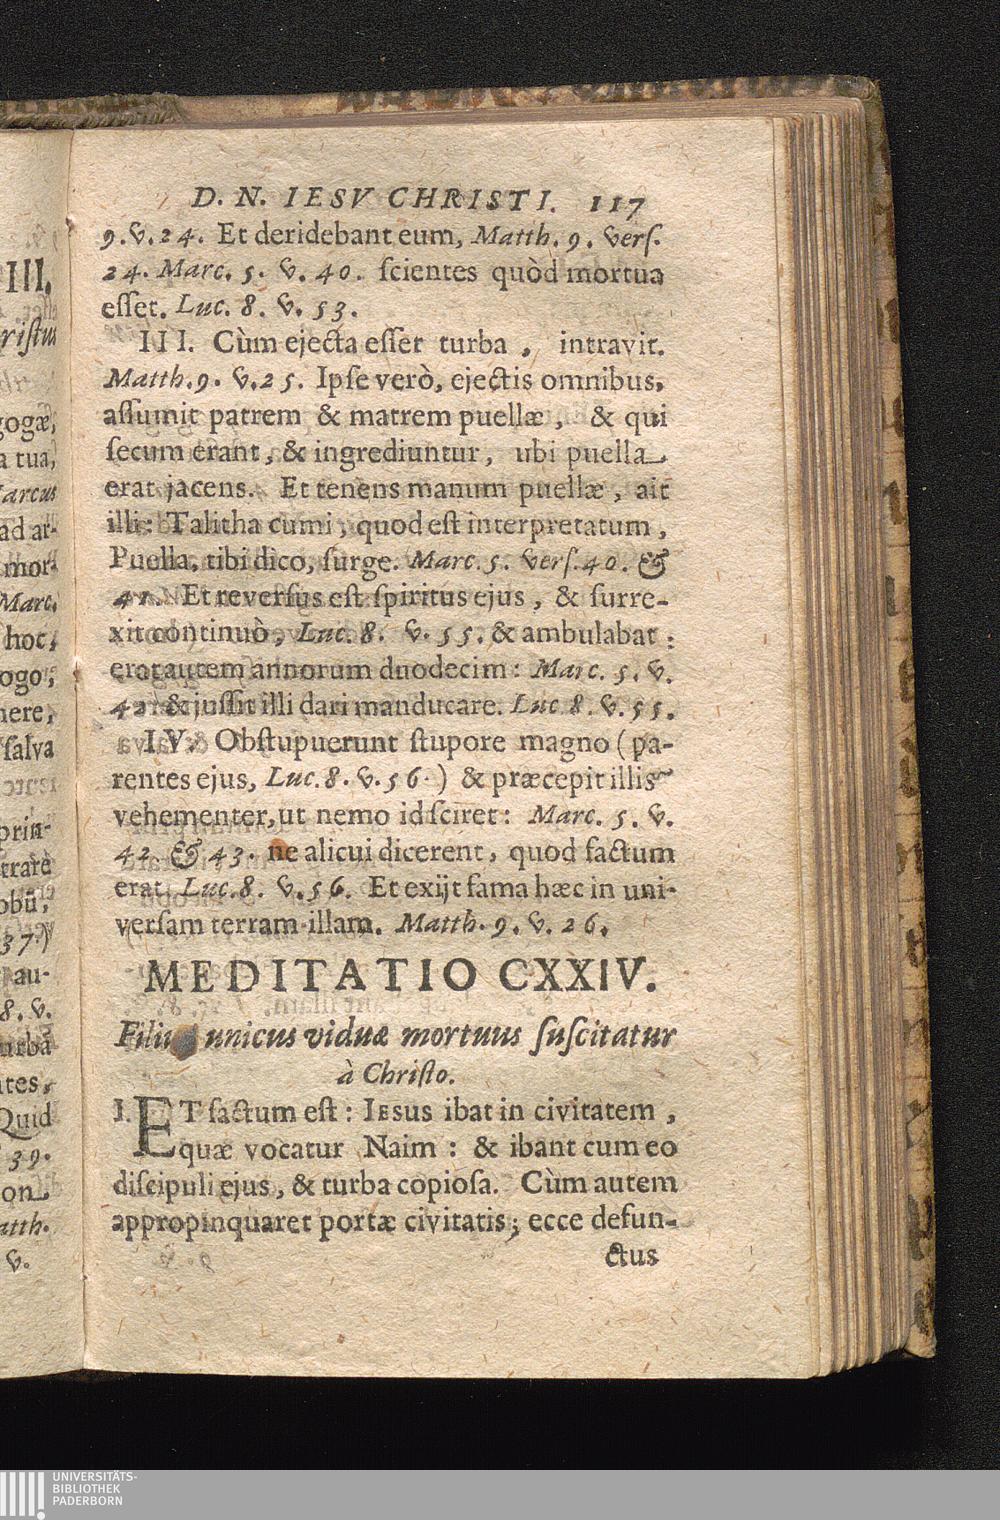 D. N. IESV CHRISTI. 117
9. v. 24. Et deridebant eum, Matth. 9. vers.
24. Marc. 5. v. 40. scientes quòd mortua
esset. Luc. 8. v. 53.
III. Cùm ejecta esset turba, intravit.
Matth. 9. v. 25. Ipse verò, ejectis omnibus,
assumit patrem & matrem puellæ, & qui
secum erant, & ingrediuntur, ubi puella
erat jacens. Et tenens manum puellæ, ait
illi: Talitha cumi, quod est interpretatum,
Puella, tibi dico, surge. Marc. 5. vers. 40. &
41. Et reversus est spiritus ejus, & surre-
xit continuò, Luc. 8. v. 55. & ambulabat:
erat autem annorum duodecim: Marc. 5. v.
42. & jussit illi dari manducare. Luc. 8. v. 55.
IV. Obstupuerunt stupore magno (pa-
rentes ejus, Luc. 8. v. 56.) & præcepit illis
vehementer, ut nemo id sciret: Marc. 5. v.
42. & 43. ne alicui dicerent, quod factum
erat. Luc. 8. v. 56. Et exijt fama hæc in uni-
versam terram illam. Matth. 9. v. 26.
MEDITATIO CXXIV.
Filius unicus viduæ mortuus suscitatur
à Christo.
I. ET factum est: IESUS ibat in civitatem,
quæ vocatur Naim: & ibant cum eo
discipuli ejus, & turba copiosa. Cùm autem
appropinquaret portæ civitatis; ecce defun-
ctus
III.
ristus
gogæ,
a tua,
Marcus
ad ar-
mor-
Marc.
hoc,
ogo,
nere,
salva
prin-
trare
obũ,
37.)
au-
8. v.
urba
ntes,
Quid
39.
on
atth.
v.
UNIVERSITÄTS-
BIBLIOTHEK
PADERBORN